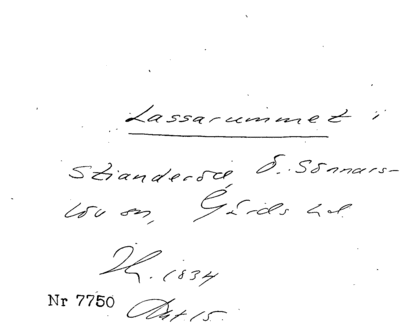 Lassarummet i
Stianderöd, Ö. Sönnars-
löv sn, Gärds hd.
1834
Nr 7750